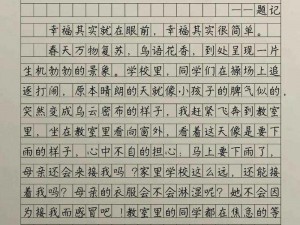 ——题记
幸福其实就在眼前，幸福其实很简单。
春天万物复苏，鸟语花香，到处呈现一片
生机勃勃的景象。学校里，同学们在操场上追
逐打闹，原本晴朗的天就像小孩子的脾气似的，
突然变成乌云密布的样子，我赶紧飞奔到教室
里，坐在教室里看向窗外，看着这天像是要下
雨的样子，心中不自的担心：马上要下雨了，
母亲还会来接我吗？家里学校这么远，还能接
着我吗？母亲的衣服会不会淋湿呢？她不会因
为接我而感冒吧！教室里的同学都在焦急的等